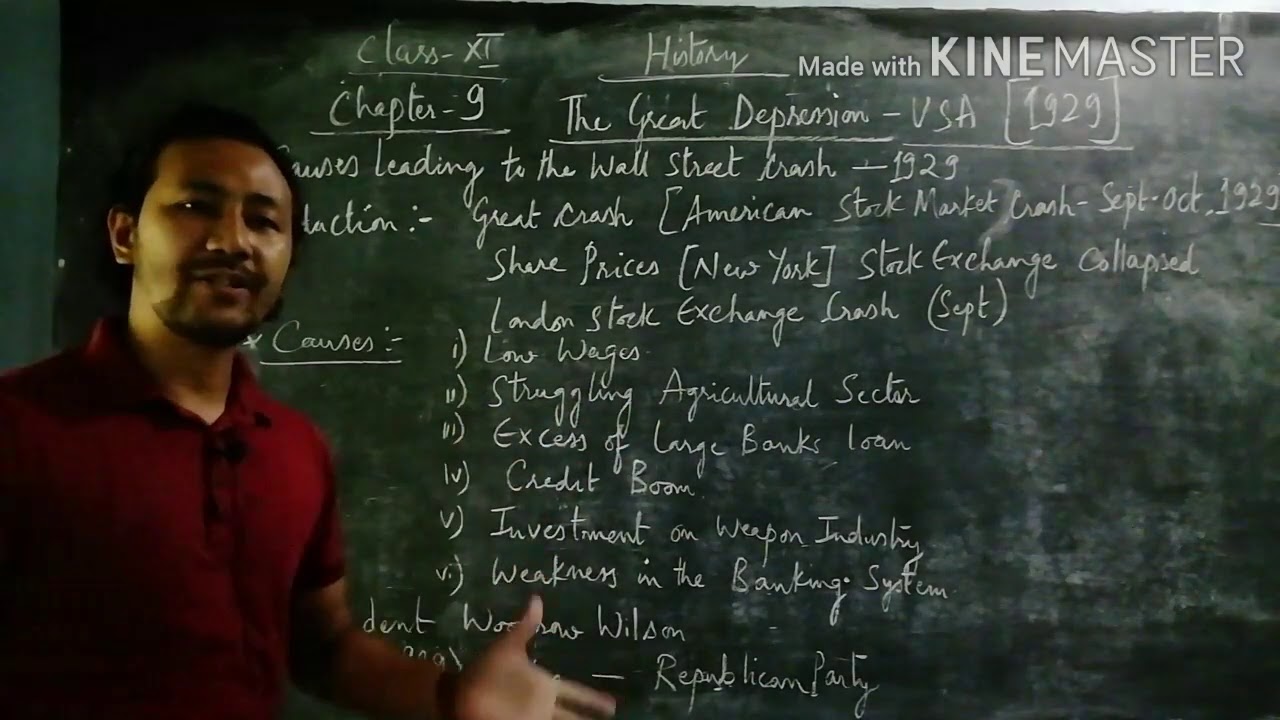 Class-XI History
Made with KINEMASTER
Chapter-9 The Great Depression - USA [1929]
Causes leading to the Wall Street Crash - 1929
:- Great Crash [American Stock Market Crash - Sept-Oct, 1929
Share Prices [New York] Stock Exchange Collapsed
London Stock Exchange Crash (Sept)
x Causes :- i) Low Wages.
ii) Struggling Agricultural Sector
iii) Excess of Large Banks loan
iv) Credit Boom.
v) Investment on Weapon Industry
vi) Weakness in the Banking System.
dent Woodrow Wilson
— Republican Party